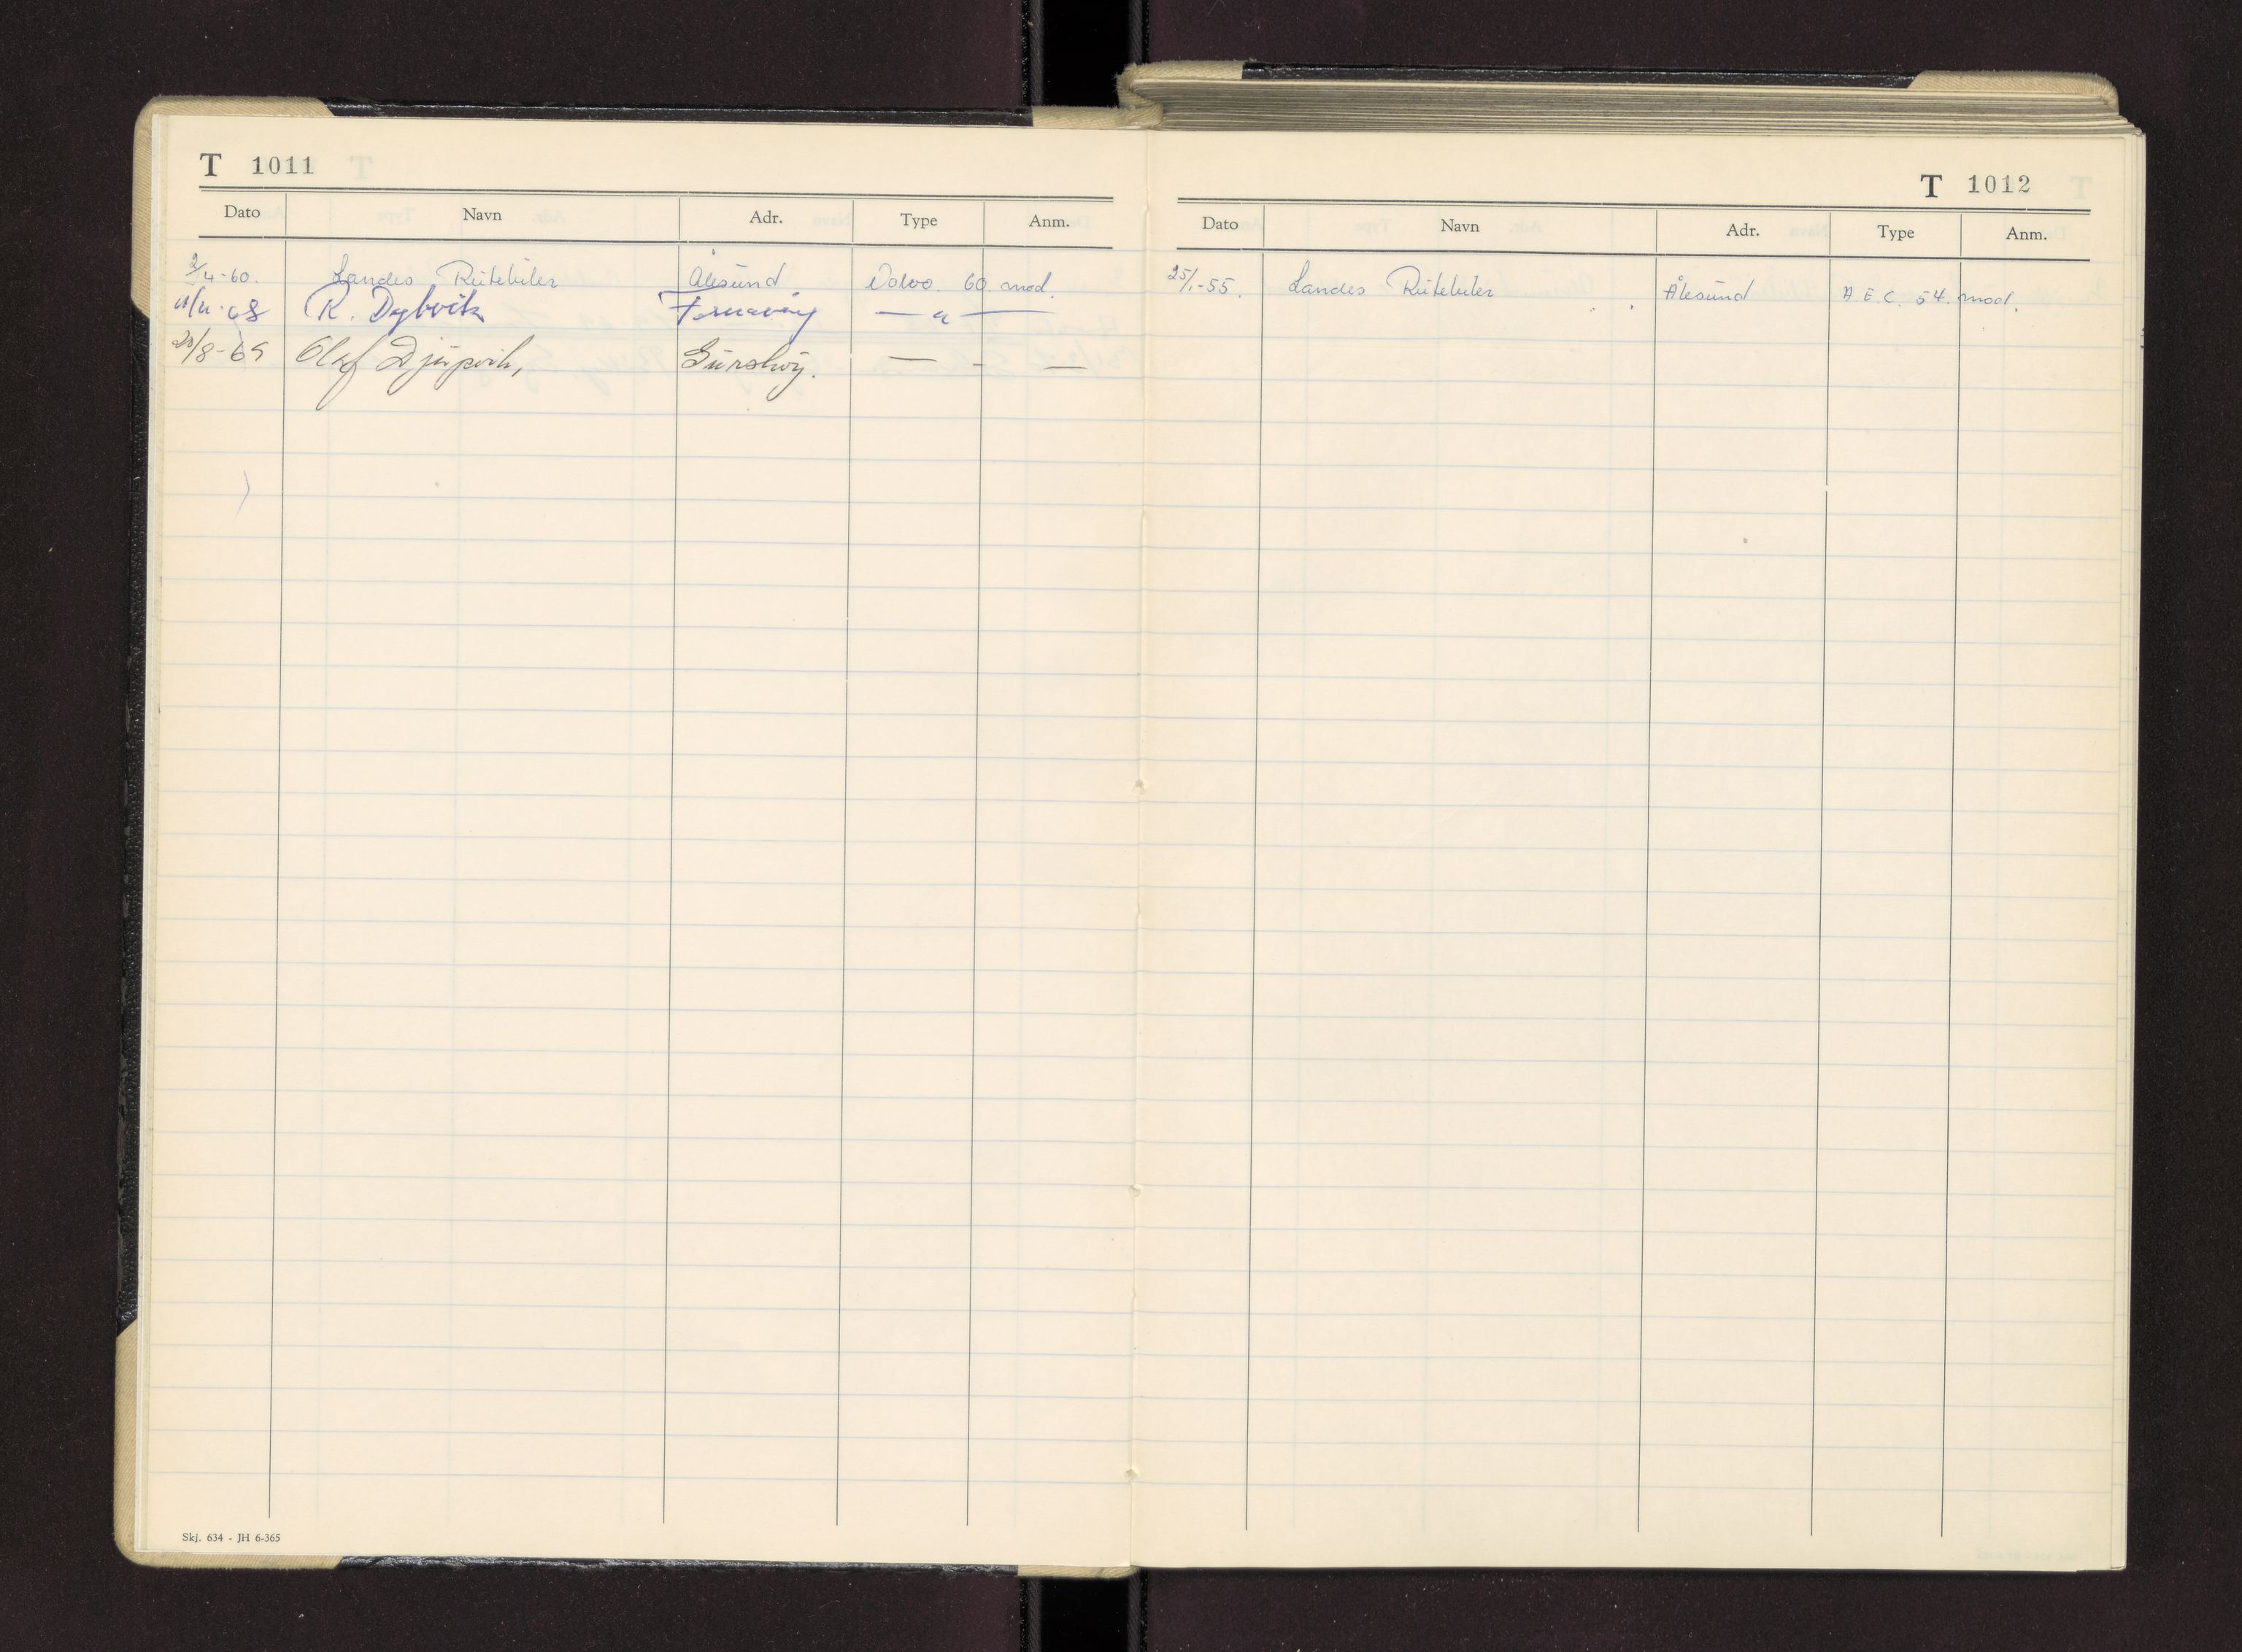 T 1011
Dato Navn Adr. Type Anm.
2/4-60. Landes Rutebiler Ålesund Volvo. 60 mod.
11/11-68 R. Dybvik Fosnavåg — " —
20/8-69 Olaf Djupvik, Gurskøy. — - —
Skj. 634 - JH 6-365
T 1012
Dato Navn Adr. Type Anm.
25/1-55. Landes Rutebiler Ålesund A.E.C. 54. mod.